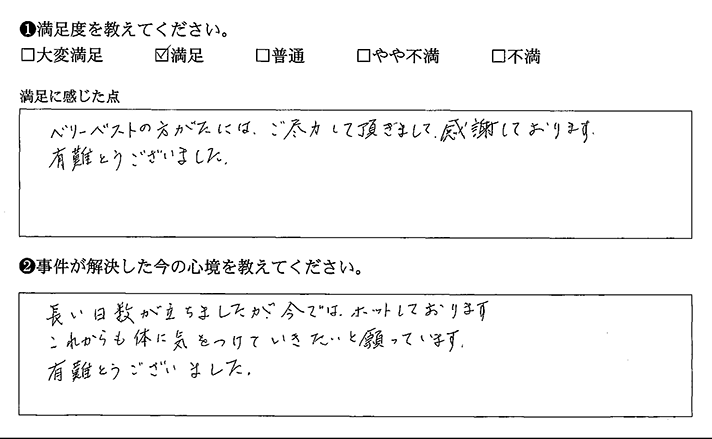 ❶満足度を教えてください。
□大変満足 ☑満足 □普通 □やや不満 □不満
満足に感じた点
ベリーベストの方がたには、ご尽力して頂きまして、感謝しております。
有難とうございました。
❷事件が解決した今の心境を教えてください。
長い日数が立ちましたが、今では、ホットしております
これからも体に気をつけていきたいと願っています。
有難とうございました。